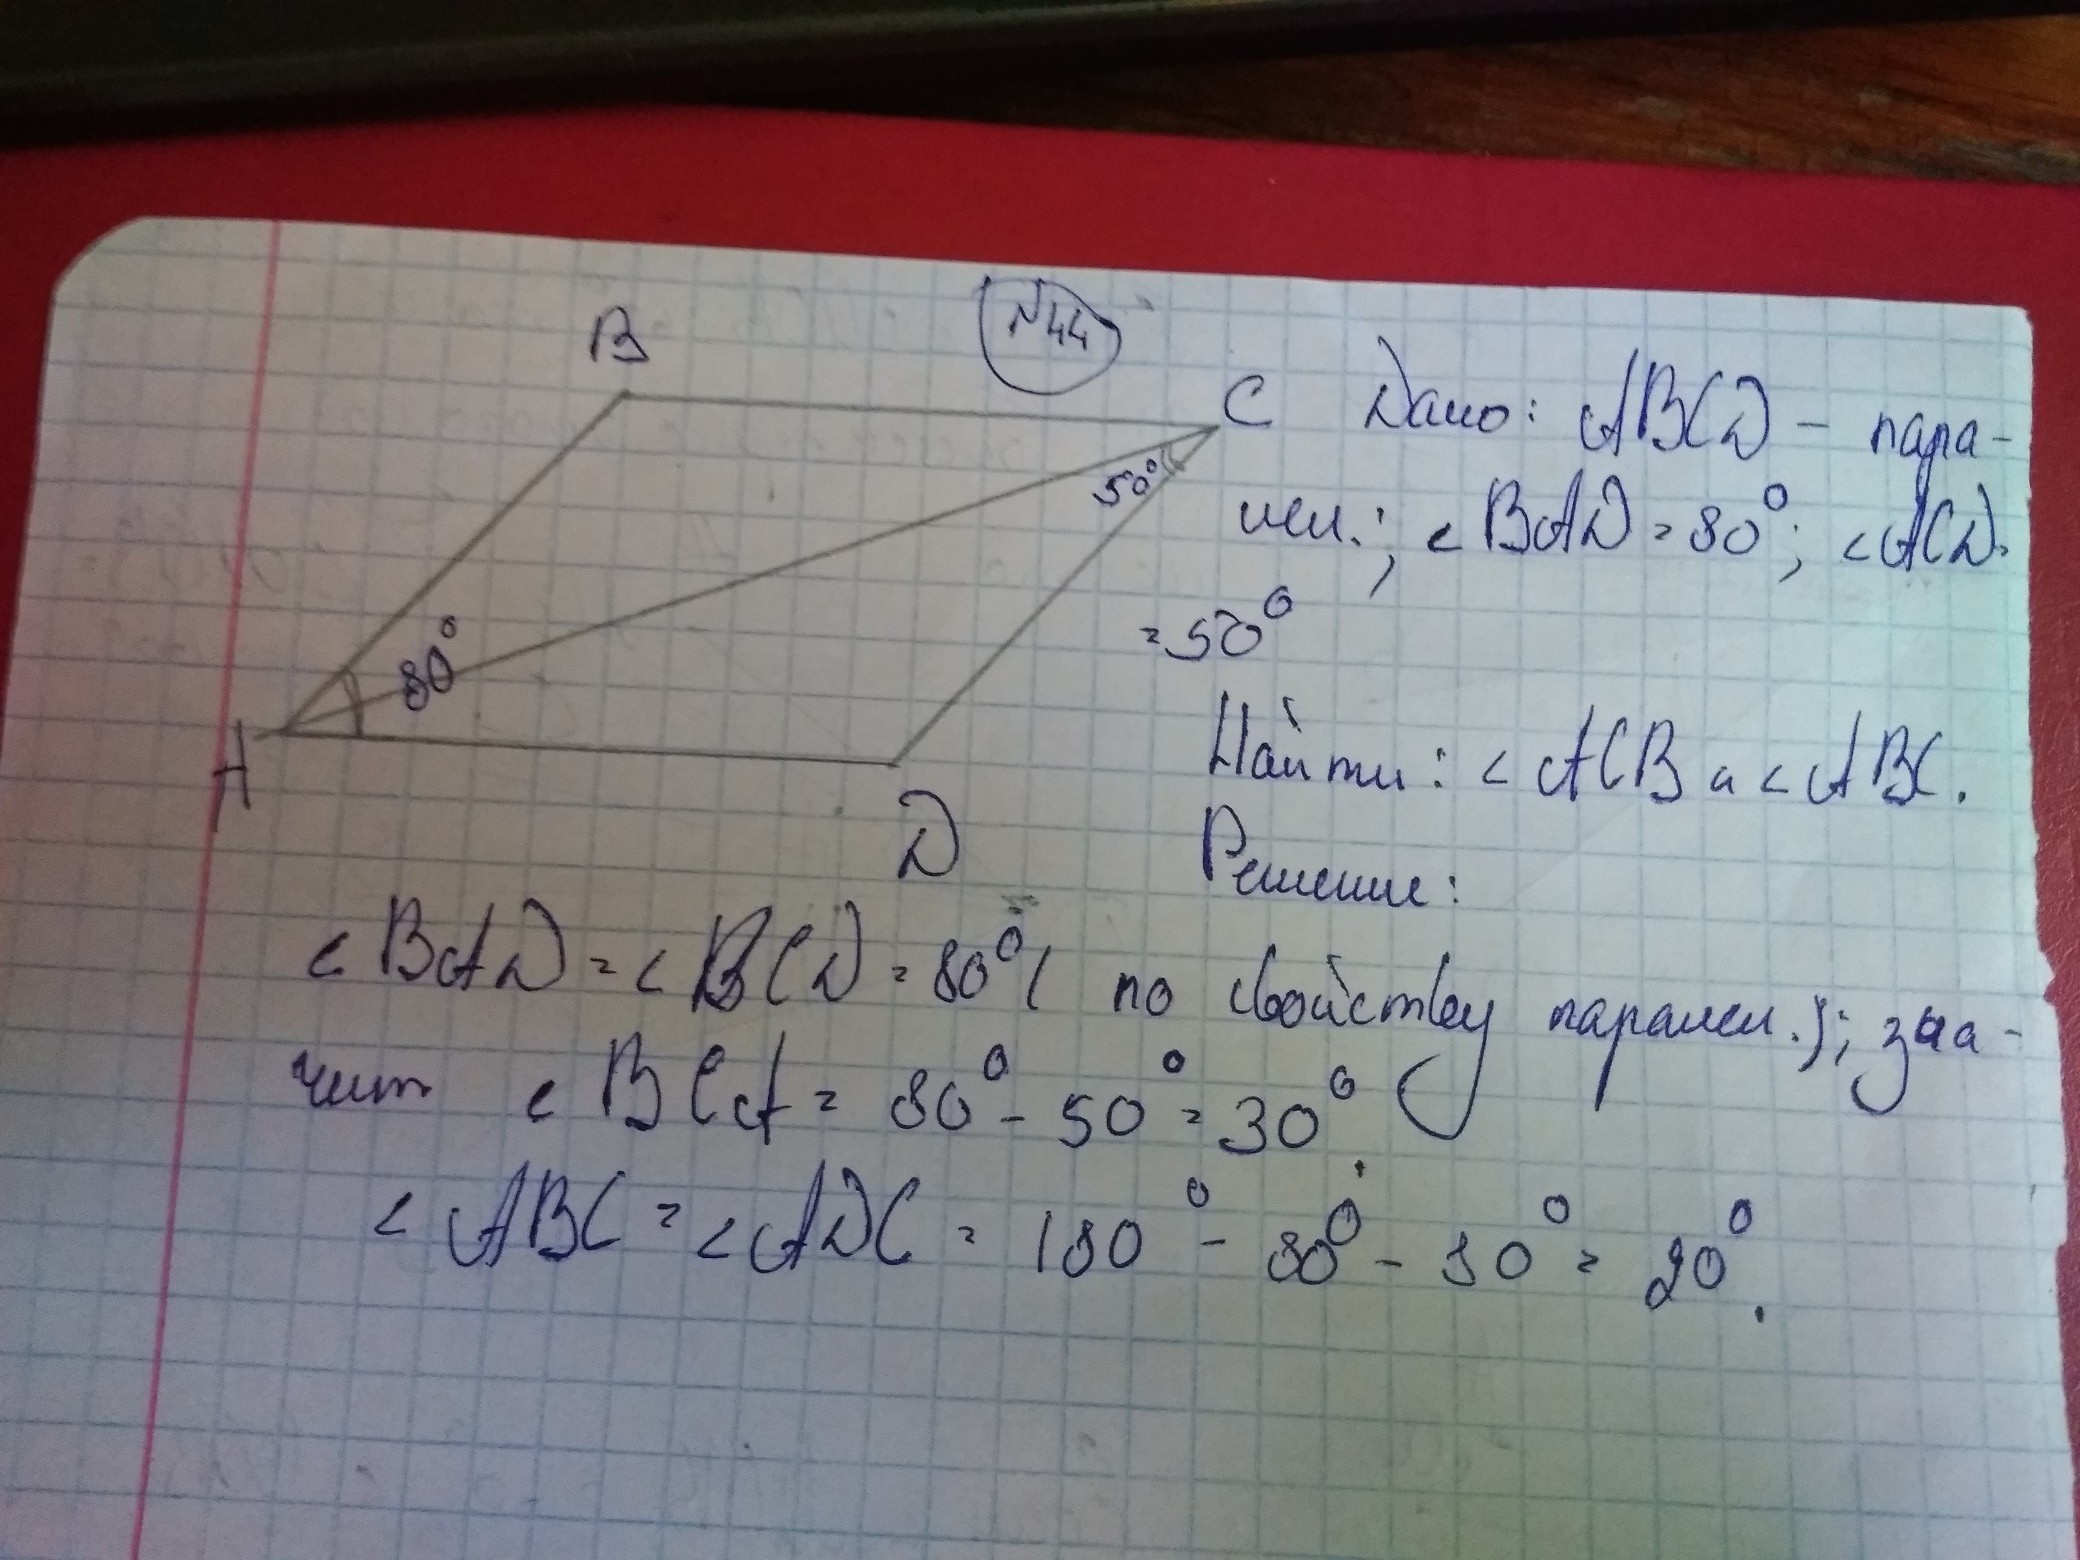 N44
B
C
Дано: ABCD – пара-
лел.; < BAD = 80°; < ACD =
= 50°
50°
80°
A
D
Найти: < ACB и < ABC.
Решение:
< BAD = < BCD = 80° ( по свойству паралел.); зна-
чит < BCA = 80° - 50° = 30°.
< ABC = < ADC = 180° - 80° - 80° = 20°.